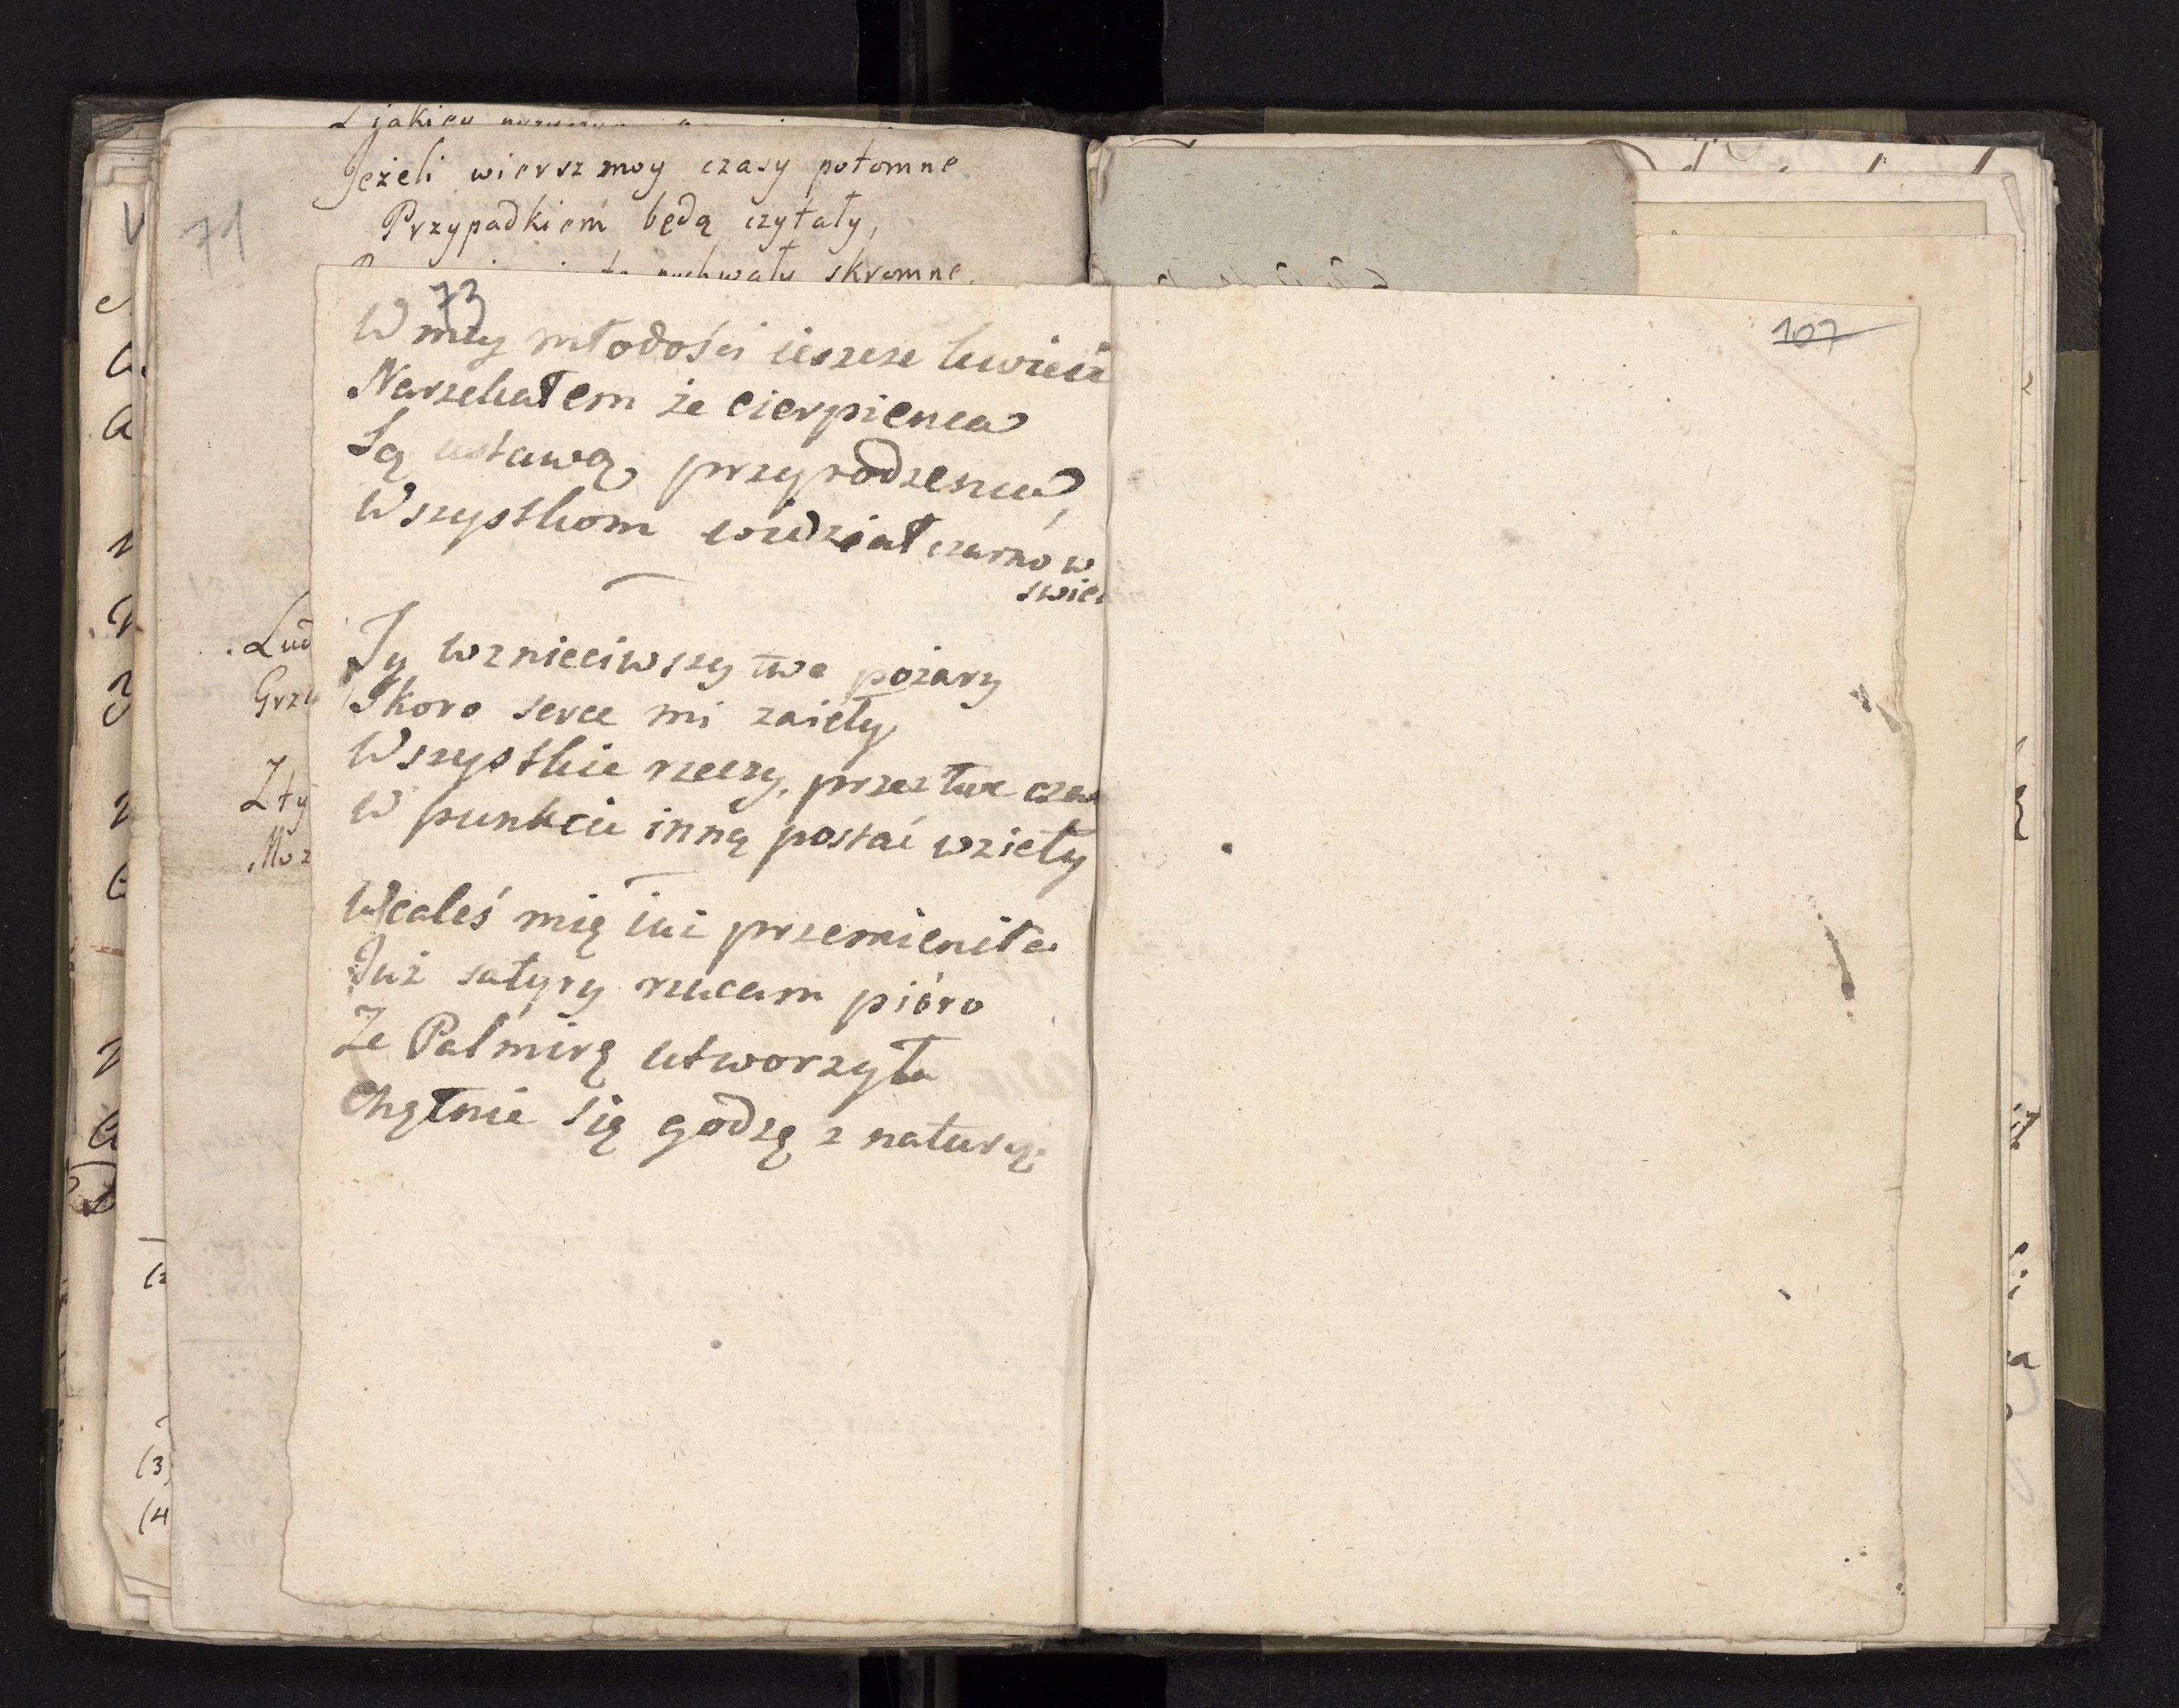 jakiey
Jeżeli wiersz moy czasy potomne
Przypadkiem będą czytały,
pochwały skromne,
71
73
107
W mey młodości ieszcze kwieci
Narzekałem że cierpienia
Są ustawą, przyrodzenia,
Wszystkom widział czarno w
swie
Ty wznieciwszy twe pożary
Skoro serce mi zaięły
Wszystkie rzeczy, przez twe cza
W punkcie inną postać wzięły
Wcaleś mię iuż przemieniła
Już satyry rzucam pióro
Że Palmirę utworzyła
Chętnie się godzę z naturą.
Lud
Grzy
Zty
Moz
(3)
(4